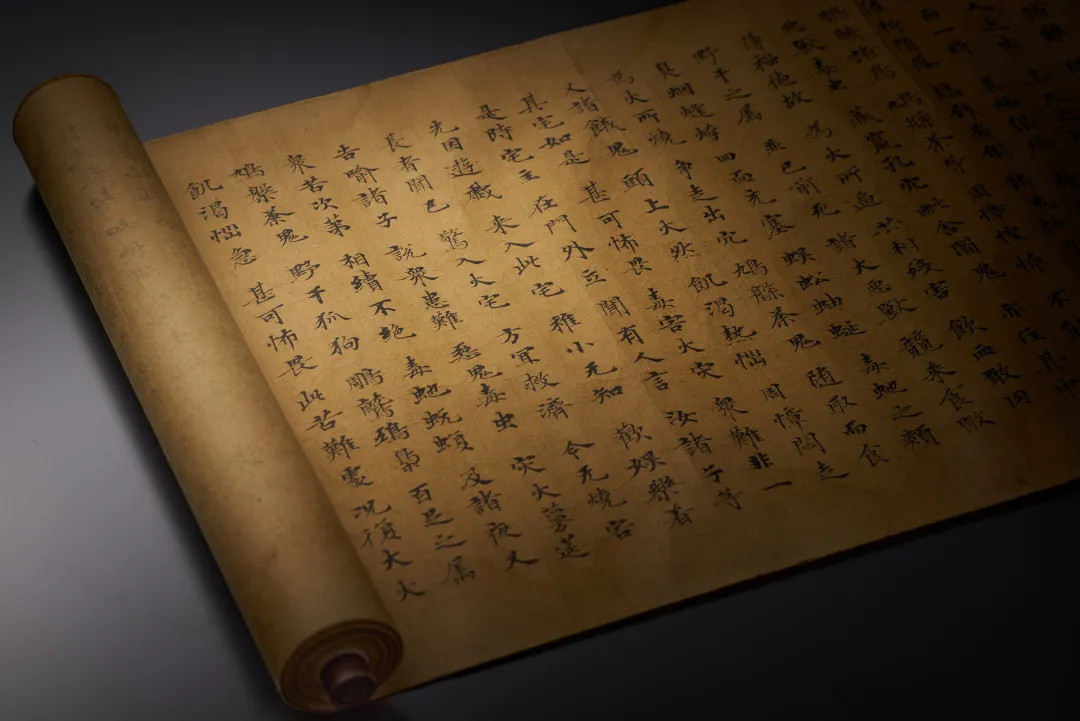 鵰鷲諸鳥 鳩槃茶等 周慞惶怖 不能
惡獸毒虫 藏竄孔穴 毗舍闍鬼 亦住其中
薄福德故 為火所逼 共相殘害 飲血噉肉
野干之属 並已前死 諸大惡獸 競來食噉
臭烟熢㶿 四面充塞 蜈蚣蚰蜒 毒虵之類
為火所燒 爭走出穴 鳩槃茶鬼 随取而食
又諸餓鬼 頭上火然 飢渴熱惱 周慞悶走
其宅如是 甚可怖畏 毒害火灾 衆難非一
是時宅主 在門外立 聞有人言 汝諸子等
先因遊戲 來入此宅 稚小无知 歡娛樂著
長者聞已 驚入火宅 方宜救濟 令无燒害
告喻諸子 說衆患難 惡鬼毒虫 灾火蔓莚
衆苦次第 相續不絶 毒虵蚖蝮 及諸夜叉
鳩槃茶鬼 野干狐狗 鵰鷲鵄梟 百足之属
飢渴惱急 甚可怖畏 此苦難處 況復大火